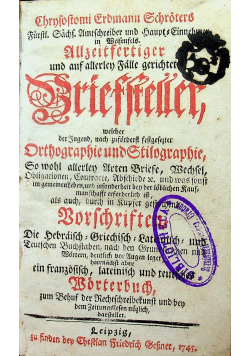 Chrysostomi Erdmann Schröters
Fürstl. Sächs. Amtschreiber und Haupt-Einnehmer
in Weißenfels.
Allzeitfertiger
und auf allerley Fälle gerichteter
Briefsteller,
welcher
der Jugend, nach zuförderst festgesetzter
Orthographie und Stilographie,
So wohl allerley Arten Briefe, Wechsel,
Obligationen, Contracte, Abschiede etc. und was sonst
im gemeinen Leben, und insonderheit bey der löblichen Kauf-
mannschafft erforderlich ist,
als auch, durch in Kupfer gestochene
Vorschriften
Die Hebräisch- Griechisch- Lateinisch- und
Teutschen Buchstaben, nach den
Wörtern, deutlich vor Augen leget
hiernächst aber
ein französisch, lateinisch und teutsches
Wörterbuch,
zum Behuf der Rechtschreibekunst und bey
dem Zeitungslesen nützlich,
darstellet.
Leipzig,
zu finden bey Christian Friedrich Geßner, 1745.